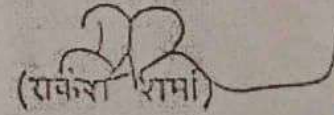 (राकेश शर्मा)